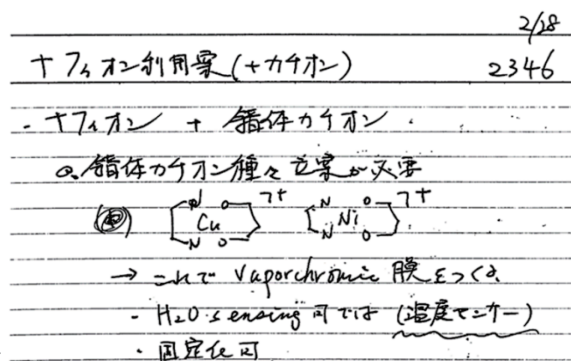 2/28
ナフィオン利用案(+カチオン) 2346
・ナフィオン + 錯体カチオン.
Q. 錯体カチオン種々立案が必要
N O Cu N O ]+ N O Ni N O ]+
→ これで vaporchromic 膜をつくる.
・H2O sensing 可では (湿度センサー)
・固定化可